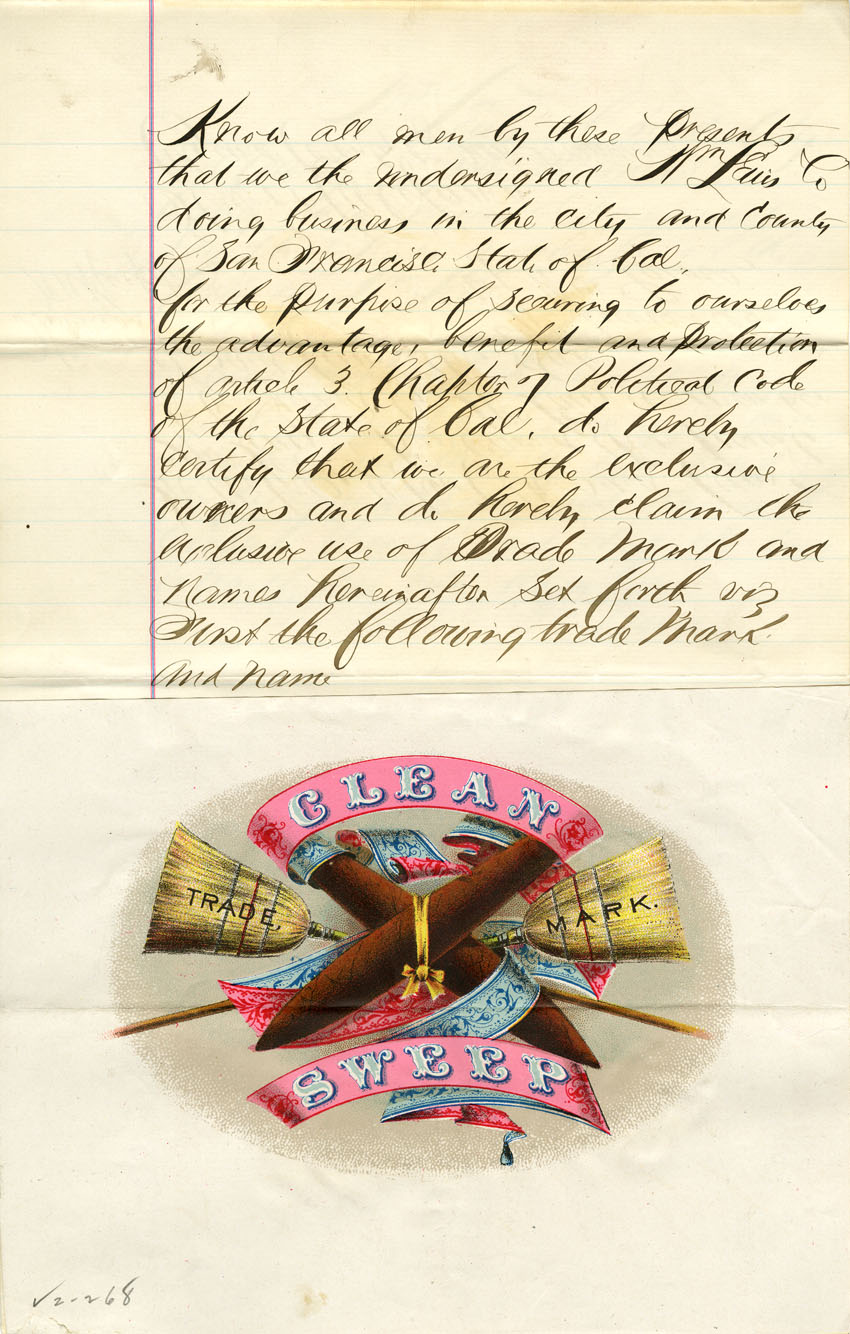 Know all men by these Presents
that we the undersigned Wm Lewis & Co
doing business in the city and County
of San Francisco State of Cal.
for the purpose of securing to ourselves
the advantage, benefit and Protection
of article 3. Chapter 7 Political Code
of the State of Cal. do hereby
certify that we are the exclusive
owners and do hereby claim the
exclusive use of Trade Mark and
Names hereinafter set forth viz
First the following trade Mark
and name
CLEAN
TRADE MARK.
SWEEP
√2-268